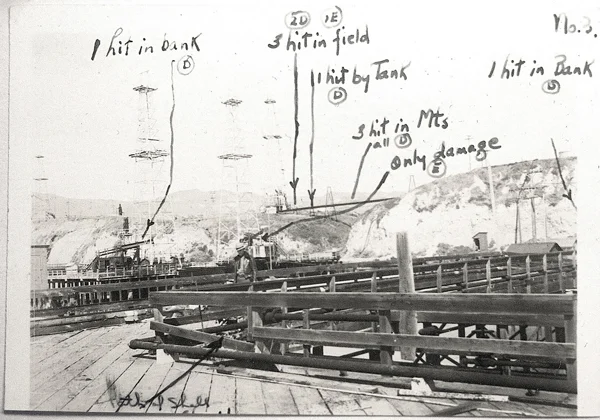 No. 3.
2D 1E
1 hit in bank
D
3 hit in field
1 hit by Tank
D
1 hit in Bank
D
3 hit in Mts
all D
Only damage
E
Shell